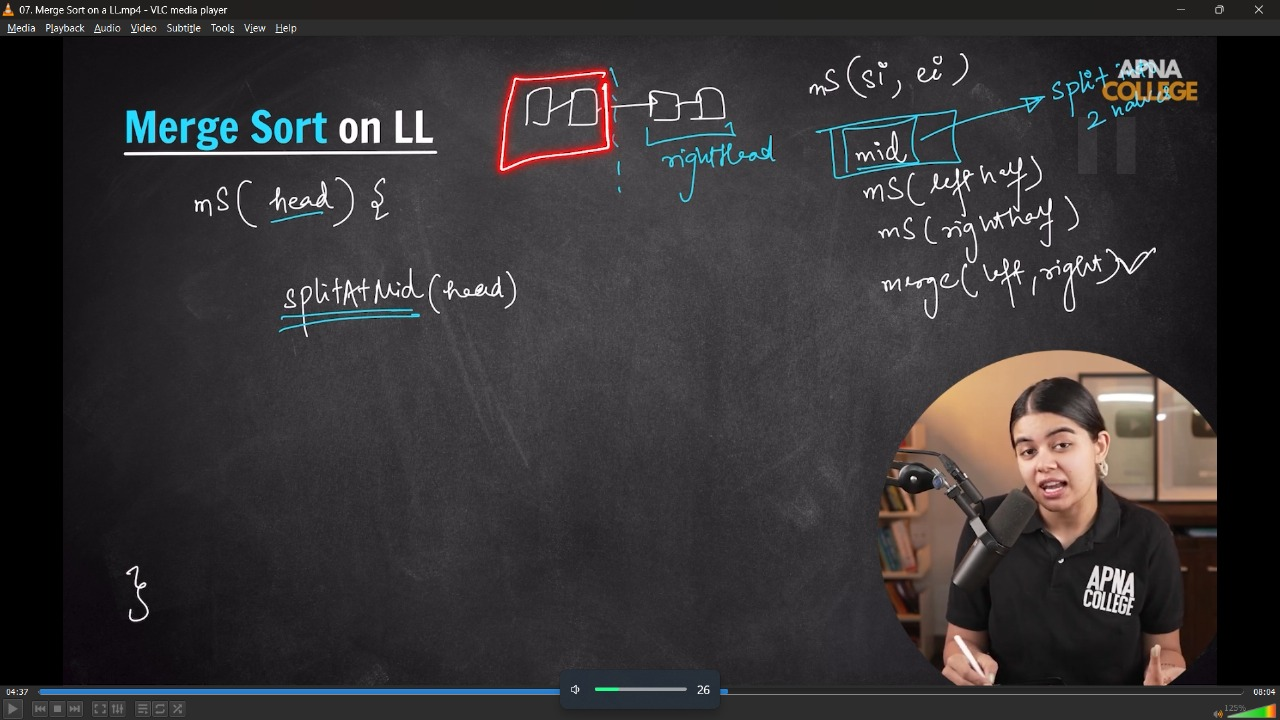 07. Merge Sort on a LL.mp4 - VLC media player
Media Playback Audio Video Subtitle Tools View Help
Merge Sort on LL
mS(head) {
splitAtMid(head)
}
rightHead
mS(si, ei)
mid
split into
2 halves
mS(left half)
mS(right half)
merge(left, right)
APNA
COLLEGE
APNA
COLLEGE
04:37
26
08:04
125%